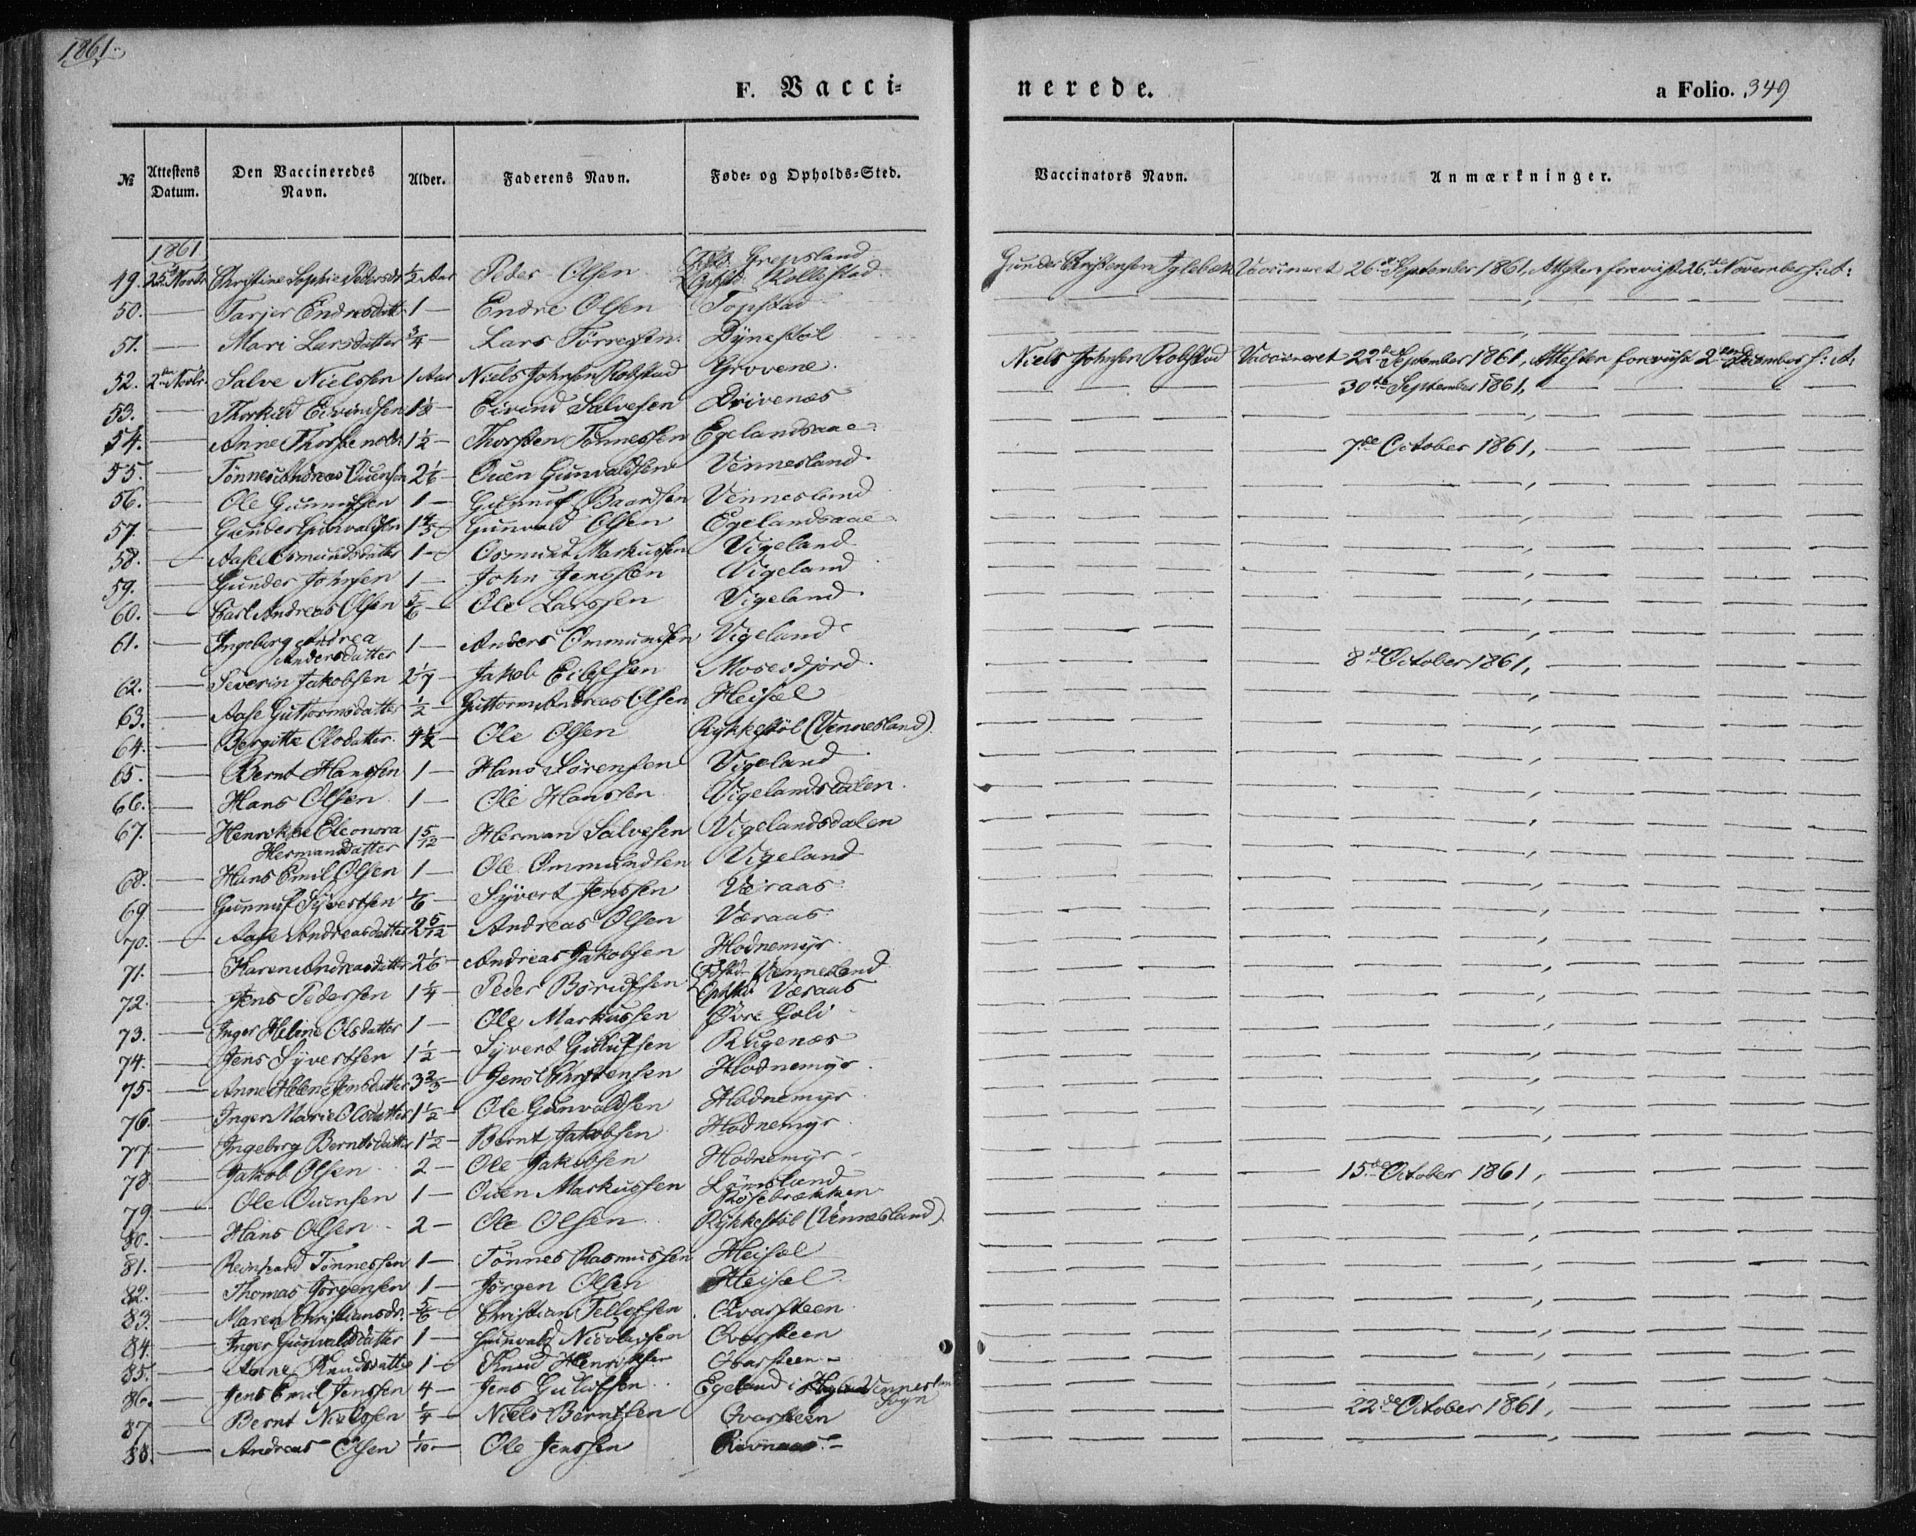 1861.
F. Vacci-
nerede.
a Folio. 349
№ Attestens Datum. Den Vaccineredes Navn. Alder. Faderens Navn. Føde- og Opholds-Sted. Vaccinators Navn. Anmærkninger.
1861
49. 25 Novbr Christine Sophie Pedersdr ½ Aar Peder Olsen Grepsland Rollestad Gunder Christensen Vaccineret 26de September 1861, Attesten foreviist 26de November s: A:
50. — Tarjer Endresdtr 1 — Endre Olsen Topstad
51. — Mari Larsdatter ¾ — Lars Tørresen Dynestøl
52. 2den Novbr Salve Nielssen 1 Aar Niels Johnsen Robstad Grovene Niels Johnsen Robstad Vaccineret 22de September 1861, Attesten foreviist 2den December s: A:
53. — Thorkild Eivindsen 1½ — Eivind Salvesen Drivenæs — 30te September 1861,
54. — Anne Thorstensdtr 1½ — Thorsten Tønnessen Egelandsaae
55. — Tønnes Andreas Ouensen 2⅙ — Ouen Gunvaldsen Vennesland — 7de October 1861,
56. — Ole Gunnufsen 1 — Gunnuf Baardsen Vennesland
57. — Gunder Gunvaldsen 1⅘ — Gunvald Olsen Egelandsaae
58. — Aase Osmundsdatter 1 — Osmund Markussen Vigeland
59. — Gunder Johnsen 1 — John Jenssen Vigeland
60. — Carl Andreas Olsen ⅚ — Ole Larssen Vigeland
61. — Ingeborg Andrea Andersdatter 1 — Anders Ommundsen Vigeland
62. — Severin Jakobsen 2 1/7 — Jakob Eilefsen Mosesdjord — 8de October 1861,
63. — Aase Guttormsdatter ½ — Guttorm Andreas Olsen Heisel
64. — Bergitte Olsdatter 4½ — Ole Olsen Rykkestøl (Vennesland)
65. — Bernt Hanssen 1 — Hans Sørensen Vigeland
66. — Hans Olsen 1 — Ole Hanssen Vigelandsdalen
67. — Henrikke Eleonora Hermansdatter 1 5/12 — Herman Salvesen Vigelandsdalen
68. — Hans Emil Olsen 1 — Ole Ommundsen Vigeland
69. — Gunnuf Syvertsen ⅙ — Syvert Jenssen Væraas
70. — Aase Andreasdatter 2 5/12 — Andreas Olsen Væraas
71. — Karen Andreasdatter 2⅙ — Andreas Jakobsen Hodnemyr
72. — Jens Pedersen 1¼ — Peder Børufsen Fødstd Vennesland Opholdst Væraas
73. — Inger Helene Olsdatter 1 — Ole Markussen Øvre Goli
74. — Jens Syvertsen 1½ — Syvert Gulufsen Rugenæs
75. — Anne Helene Jensdatter 3⅔ — Jens Christensen Hodnemyr
76. — Inger Marie Olsdatter 1½ — Ole Gunvaldsen Hodnemyr
77. — Ingeborg Berntsdatter 1½ — Bernt Jakobsen Hodnemyr
78. — Jakob Olsen 2 — Ole Jakobsen Hodnemyr
79. — Ole Ouensen 1 — Ouen Markussen Lønsland Røsebrækken — 15de October 1861,
80. — Hans Olsen 2 — Ole Olsen Rykkestøl (Vennesland)
81. — Reinhard Tønnessen 1 — Tønnes Rasmussen Heisel
82. — Thomas Jørgensen 1 — Jørgen Olsen Heisel
83. — Maren Christiansdr. ⅚ — Christian Tellefsen Qvarsteen
84. — Inger Gunvaldsdatter 1 — Gunvald Nicolaisen Qvarsteen
85. — Anne Knudsdatter 1 — Knud Henriksen Qvarsteen
86. — Jens Emil Jenssen 4 — Jens Gulufsen Egeland i Vennesland Sogn
87. — Bernt Nielssen ¼ — Niels Berntsen Qvarsteen — 22de October 1861,
88. — Andreas Olsen 1/10 — Ole Jenssen Rivnaas